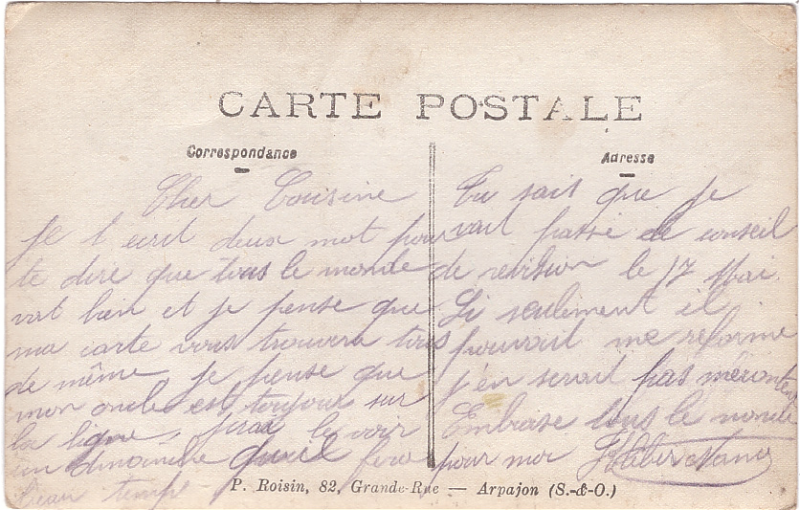 CARTE POSTALE
Correspondance
Cher Cousine
Je t ecrit deux mot pour
te dire que tous le monde
vat bien et je pense que
ma carte vous trouvera tous
de même, je pense que
mon oncle est toujour sur
la ligne, jirai le voir
un dimanche quil fera
beau temp
Adresse
Tu sais que je
vait passé le conseil
de revision le 17 Mai.
Si seulement il
pouvait me reforme
j'en serait pas mécontent
Embrase tous le monde
pour moi Kleber
P. Roisin, 82, Grande-Rue — Arpajon (S.-&-O.)